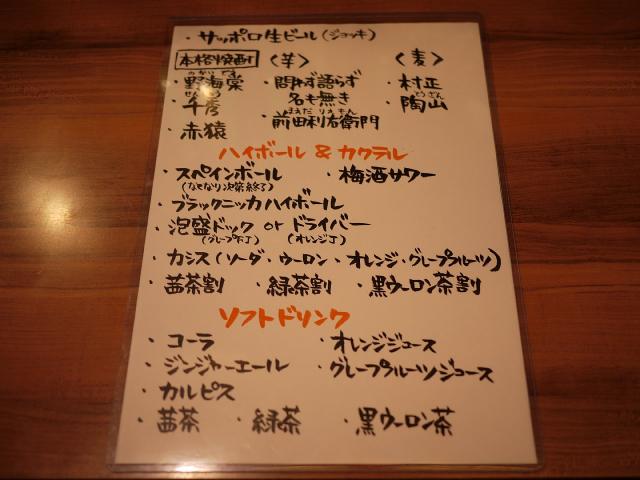 ・サッポロ生ビール(ジョッキ)
本格焼酎 (芋) (麦)
・野海棠 ・問わず語らず名も無き ・村正
・千秀 ・前田利右衛門 ・陶山
・赤猿
ハイボール & カクテル
・スペインボール ・梅酒サワー
(なくなり次第終了)
・ブラックニッカハイボール
・泡盛ドック or ドライバー
(グレープ下J) (オレンジJ)
・カシス(ソーダ・ウーロン・オレンジ・グレープフルーツ)
・茜茶割 ・緑茶割 ・黒ウーロン茶割
ソフトドリンク
・コーラ ・オレンジジュース
・ジンジャーエール ・グレープフルーツジュース
・カルピス
・茜茶 ・緑茶 ・黒ウーロン茶